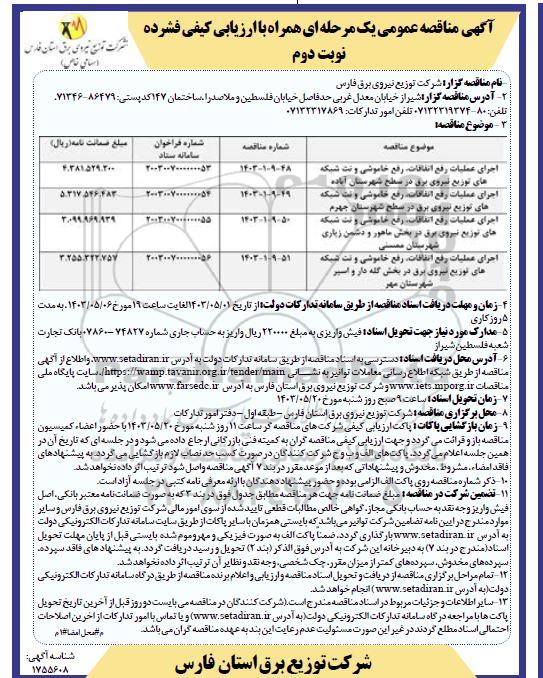 آگهی مناقصه عمومی یک مرحله ای همراه با ارزیابی کیفی فشرده
نوبت دوم
شرکت توزیع نیروی برق استان فارس
(سهامی خاص)
نام مناقصه گزار: شرکت توزیع نیروی برق فارس
۲- آدرس مناقصه گزار: شیراز خیابان معدل غربی حدفاصل خیابان فلسطین و ملاصدرا، ساختمان ۱۴۷ کدپستی: ۸۶۴۷۹-۷۱۳۴۶
تلفن: ۸۰-۰۷۱۳۲۳۱۹۳۷۴ تلفن امور تدارکات: ۰۷۱۳۲۳۱۷۸۶۹
۳- موضوع مناقصه:
موضوع مناقصه شماره مناقصه شماره فراخوان سامانه ستاد مبلغ ضمانت نامه (ریال)
اجرای عملیات رفع اتفاقات، رفع خاموشی و نت شبکه های توزیع نیروی برق در سطح شهرستان آباده ۱۴۰۳-۱-۹-۴۸ ۲۰۰۳۰۰۷۰۰۰۰۰۰۰۵۳ ۴،۳۸۱،۵۲۹،۳۰۰
اجرای عملیات رفع اتفاقات، رفع خاموشی و نت شبکه های توزیع نیروی برق در سطح شهرستان جهرم ۱۴۰۳-۱-۹-۴۹ ۲۰۰۳۰۰۷۰۰۰۰۰۰۰۵۴ ۵،۳۱۷،۵۴۶،۴۸۳
اجرای عملیات رفع اتفاقات، رفع خاموشی و نت شبکه های توزیع نیروی برق در بخش ماهور و دشمن زیاری شهرستان ممسنی ۱۴۰۳-۱-۹-۵۰ ۲۰۰۳۰۰۷۰۰۰۰۰۰۰۵۵ ۳،۰۹۹،۹۶۹،۹۳۹
اجرای عملیات رفع اتفاقات، رفع خاموشی و نت شبکه های توزیع نیروی برق در بخش گله دار و اسیر شهرستان مهر ۱۴۰۳-۱-۹-۵۱ ۲۰۰۳۰۰۷۰۰۰۰۰۰۰۵۶ ۳،۲۵۵،۳۲۲،۷۵۷
۴- زمان و مهلت دریافت اسناد مناقصه از طریق سامانه تدارکات دولت: از تاریخ ۱۴۰۳/۰۵/۰۱ لغایت ساعت ۱۹ مورخ ۱۴۰۳/۰۵/۰۶، به مدت
۵ روز کاری
۵- مدارک مورد نیاز جهت تحویل اسناد: فیش واریزی به مبلغ ۲۲۰۰۰۰۰ ریال واریز به حساب جاری شماره ۷۴۸۲۷-۰۷۸۶۰ بانک تجارت
شعبه فلسطین شیراز
۶- آدرس محل دریافت اسناد: دسترسی به اسناد مناقصه از طریق سامانه تدارکات دولت به آدرس www.setadiran.ir، واطلاع از آگهی
مناقصه از طریق شبکه اطلاع رسانی معاملات توانیر به نشانی https://wamp.tavanir.org.ir/tender/main، سایت پایگاه ملی
مناقصات www.iets.mporg.ir و شرکت توزیع نیروی برق استان فارس به آدرس www.farsedc.ir امکان پذیر می باشد.
۷- زمان تحویل اسناد: ساعت ۹ صبح روز شنبه مورخ ۱۴۰۳/۰۵/۲۰
۸- محل برگزاری مناقصه: شرکت توزیع نیروی برق استان فارس - طبقه اول - دفتر امور تدارکات
۹- زمان بازگشایی پاکات: پاکت ارزیابی کیفی شرکت های مناقصه گر ساعت ۱۱ روز شنبه مورخ ۱۴۰۳/۰۵/۲۰ با حضور اعضاء کمیسیون
مناقصه باز و قرائت می گردد و جهت ارزیابی کیفی مناقصه گران به کمیته فنی بازرگانی ارجاع داده می شود و در جلسه ای که تاریخ آن در
همین جلسه اعلام می گردد، پاکت های الف و ب و ج شرکت کنندگان در صورت کسب حد نصاب لازم بازگشایی می گردد. به پیشنهادهای
فاقد امضاء، مشروط، مخدوش و پیشنهاداتی که بعد از موعد مقرر در بند ۷ آگهی مناقصه واصل شود ترتیب اثر داده نخواهد شد.
۱۰- ذکر شماره مناقصه روی پاکت الف الزامی بوده و حضور پیشنهاددهندگان با ارئه معرفی نامه کتبی در جلسه آزاد است.
۱۱- تضمین شرکت در مناقصه: مبلغ ضمانت نامه جهت هر مناقصه مطابق جدول فوق در بند ۳ که به صورت ضمانت نامه معتبر بانکی، اصل
فیش واریز وجه نقد به حساب بانکی مجاز، گواهی خالص مطالبات قطعی تایید شده از سوی امور مالی شرکت توزیع نیروی برق فارس و سایر
موارد مندرج در آیین نامه تضامین شرکت توانیر می باشد که بایستی همزمان با سایر پاکات از طریق سایت سامانه تدارکات الکترونیکی دولت
به آدرس www.setadiran.ir بارگذاری گردد، ضمنا پاکت الف به صورت فیزیکی و مهر و موم شده بایستی قبل از پایان مهلت تحویل
اسناد (مندرج در بند ۷) به دبیرخانه این شرکت به آدرس فوق الذکر (بند ۲) تحویل و رسید دریافت گردد. به پیشنهاد های فاقد سپرده،
سپرده های مخدوش، سپرده های کمتر از میزان مقرر، چک شخصی، وجه نقد و نظایر آن ترتیب اثر داده نخواهد شد.
۱۲- تمام مراحل برگزاری مناقصه از دریافت و تحویل اسناد مناقصه و ارزیابی و اعلام برنده مناقصه از طریق درگاه سامانه تدارکات الکترونیکی
دولت (به آدرس www.setadiran.ir) انجام خواهد شد.
۱۳- سایر اطلاعات و جزئیات مربوط در اسناد مناقصه مندرج است. (شرکت کنندگان در مناقصه می بایست دو روز قبل از آخرین تاریخ تحویل
پاکت ها با مراجعه در گاه سامانه تدارکات الکترونیکی دولت (به آدرس www.setadiran.ir) و یا تماس با امور تدارکات از آخرین اصلاحات
احتمالی اسناد مطلع گردند در غیر این صورت مسئولیت عدم رعایت این بند به عهده مناقصه گران می باشد.
شناسه آگهی:
۱۷۵۵۶۰۸
شرکت توزیع برق استان فارس